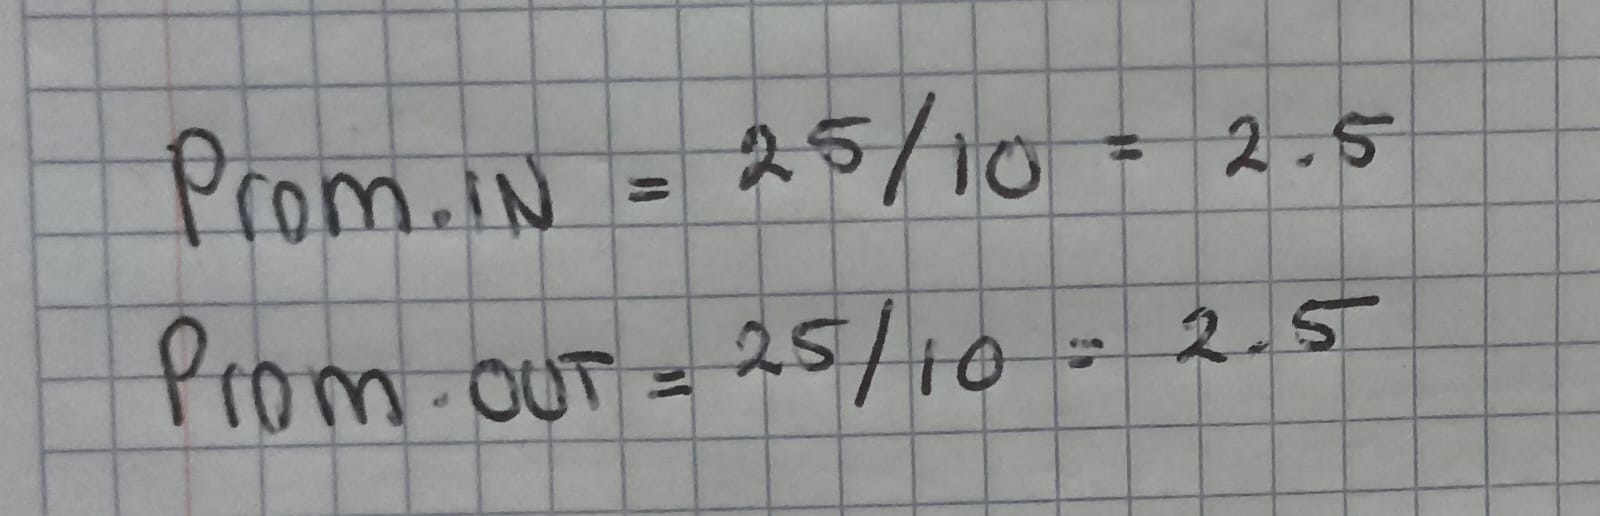 Prom. IN = 25/10 = 2.5
Prom. OUT = 25/10 = 2.5